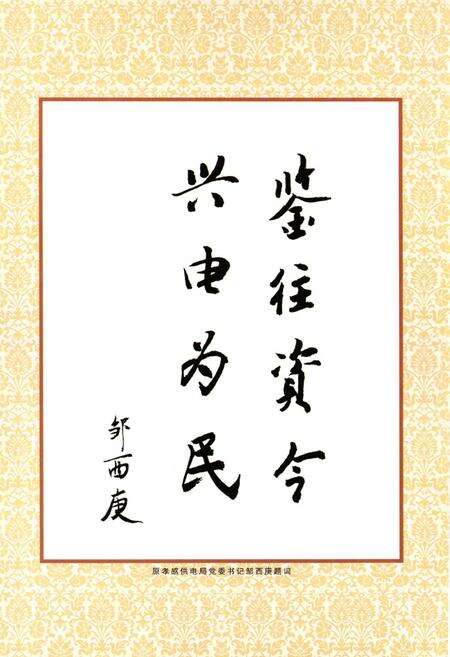 鉴往资今
兴电为民
邹西庚
原孝感供电局党委书记邹西庚题词